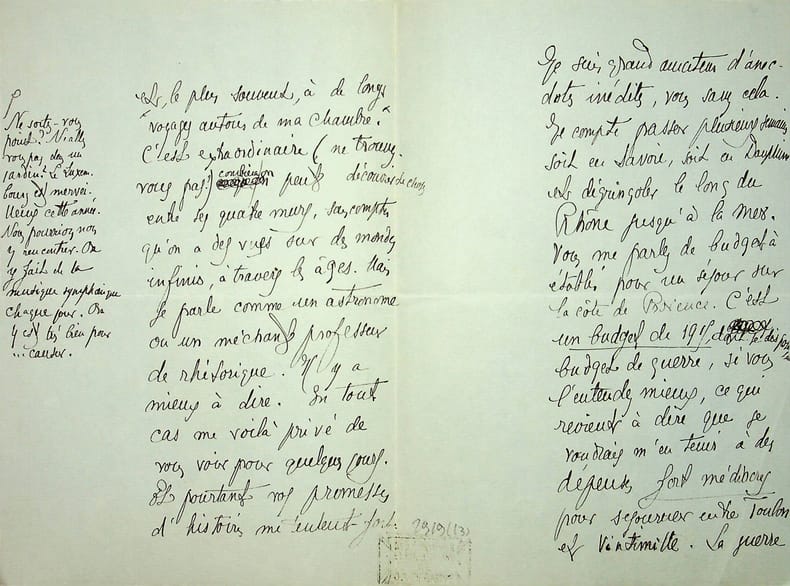 Et, le plus souvent, à de longs
"voyages autour de ma chambre."
C'est extraordinaire (ne trouvez-
vous pas?) combien on peut découvrir de choses
entre ses quatre murs, sans compter
qu'on a des vues sur des mondes
infinis, à travers les âges. Mais
je parle comme un astronome
ou un méchant professeur
de rhétorique. Il y a
mieux à dire. En tout
cas me voilà privé de
vous voir pour quelques jours.
Et pourtant vos promesses
d'histoires me tentent fort.
Ne sortez-vous
point? N'allez
vous pas dans un
jardin? Le Luxem-
bourg est mervei-
lleux cette année.
Nous pourrions nous
y rencontrer. On
y fait de la
musique symphonique
chaque jour. On
y est très bien pour
...causer.
Je suis grand amateur d'anec-
dotes inédites, vous savez cela.
Je compte passer plusieurs semaines
soit en Savoie, soit en Dauphiné
et dégringoler le long du
Rhône jusqu'à la mer.
Vous me parlez de budget à
établir pour un séjour sur
la côte de Provence. C'est
un budget de
budget de guerre, si vous
l'entendez mieux, ce qui
revient à dire que je
voudrais m'en tenir à des
dépenses fort médiocres
pour séjourner entre Toulon
et Vintimille. La guerre
2919(13)